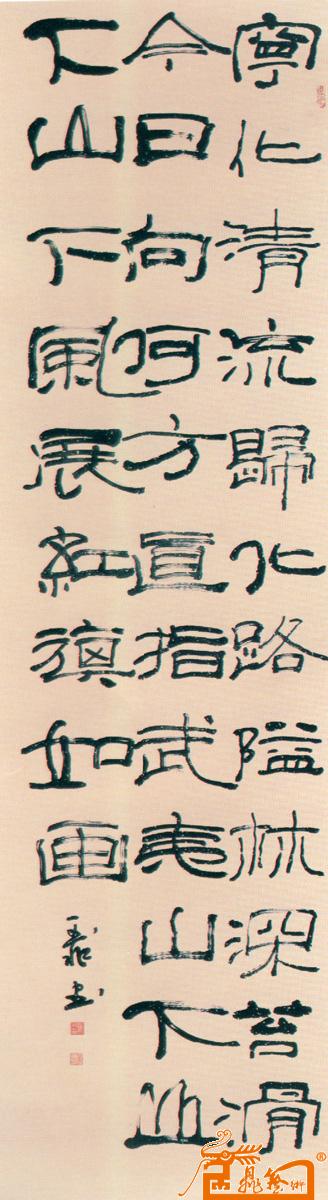 寧化清流歸化路隘林深苔滑
今日向何方直指武夷山下山
下山下風展紅旗如画